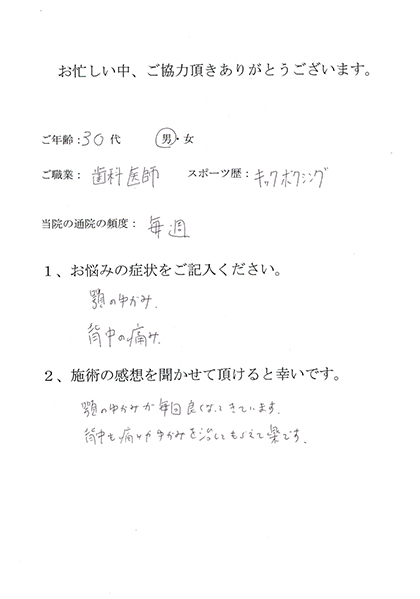 お忙しい中、ご協力頂きありがとうございます。
ご年齢：30代 男・女
ご職業： 歯科医師 スポーツ歴：キックボクシング
当院の通院の頻度： 毎週
1、お悩みの症状をご記入ください。
顎のゆがみ.
背中の痛み.
2、施術の感想を聞かせて頂けると幸いです。
顎のゆがみが毎回良くなってきています.
背中も痛みやゆがみを治してもらえて楽です.